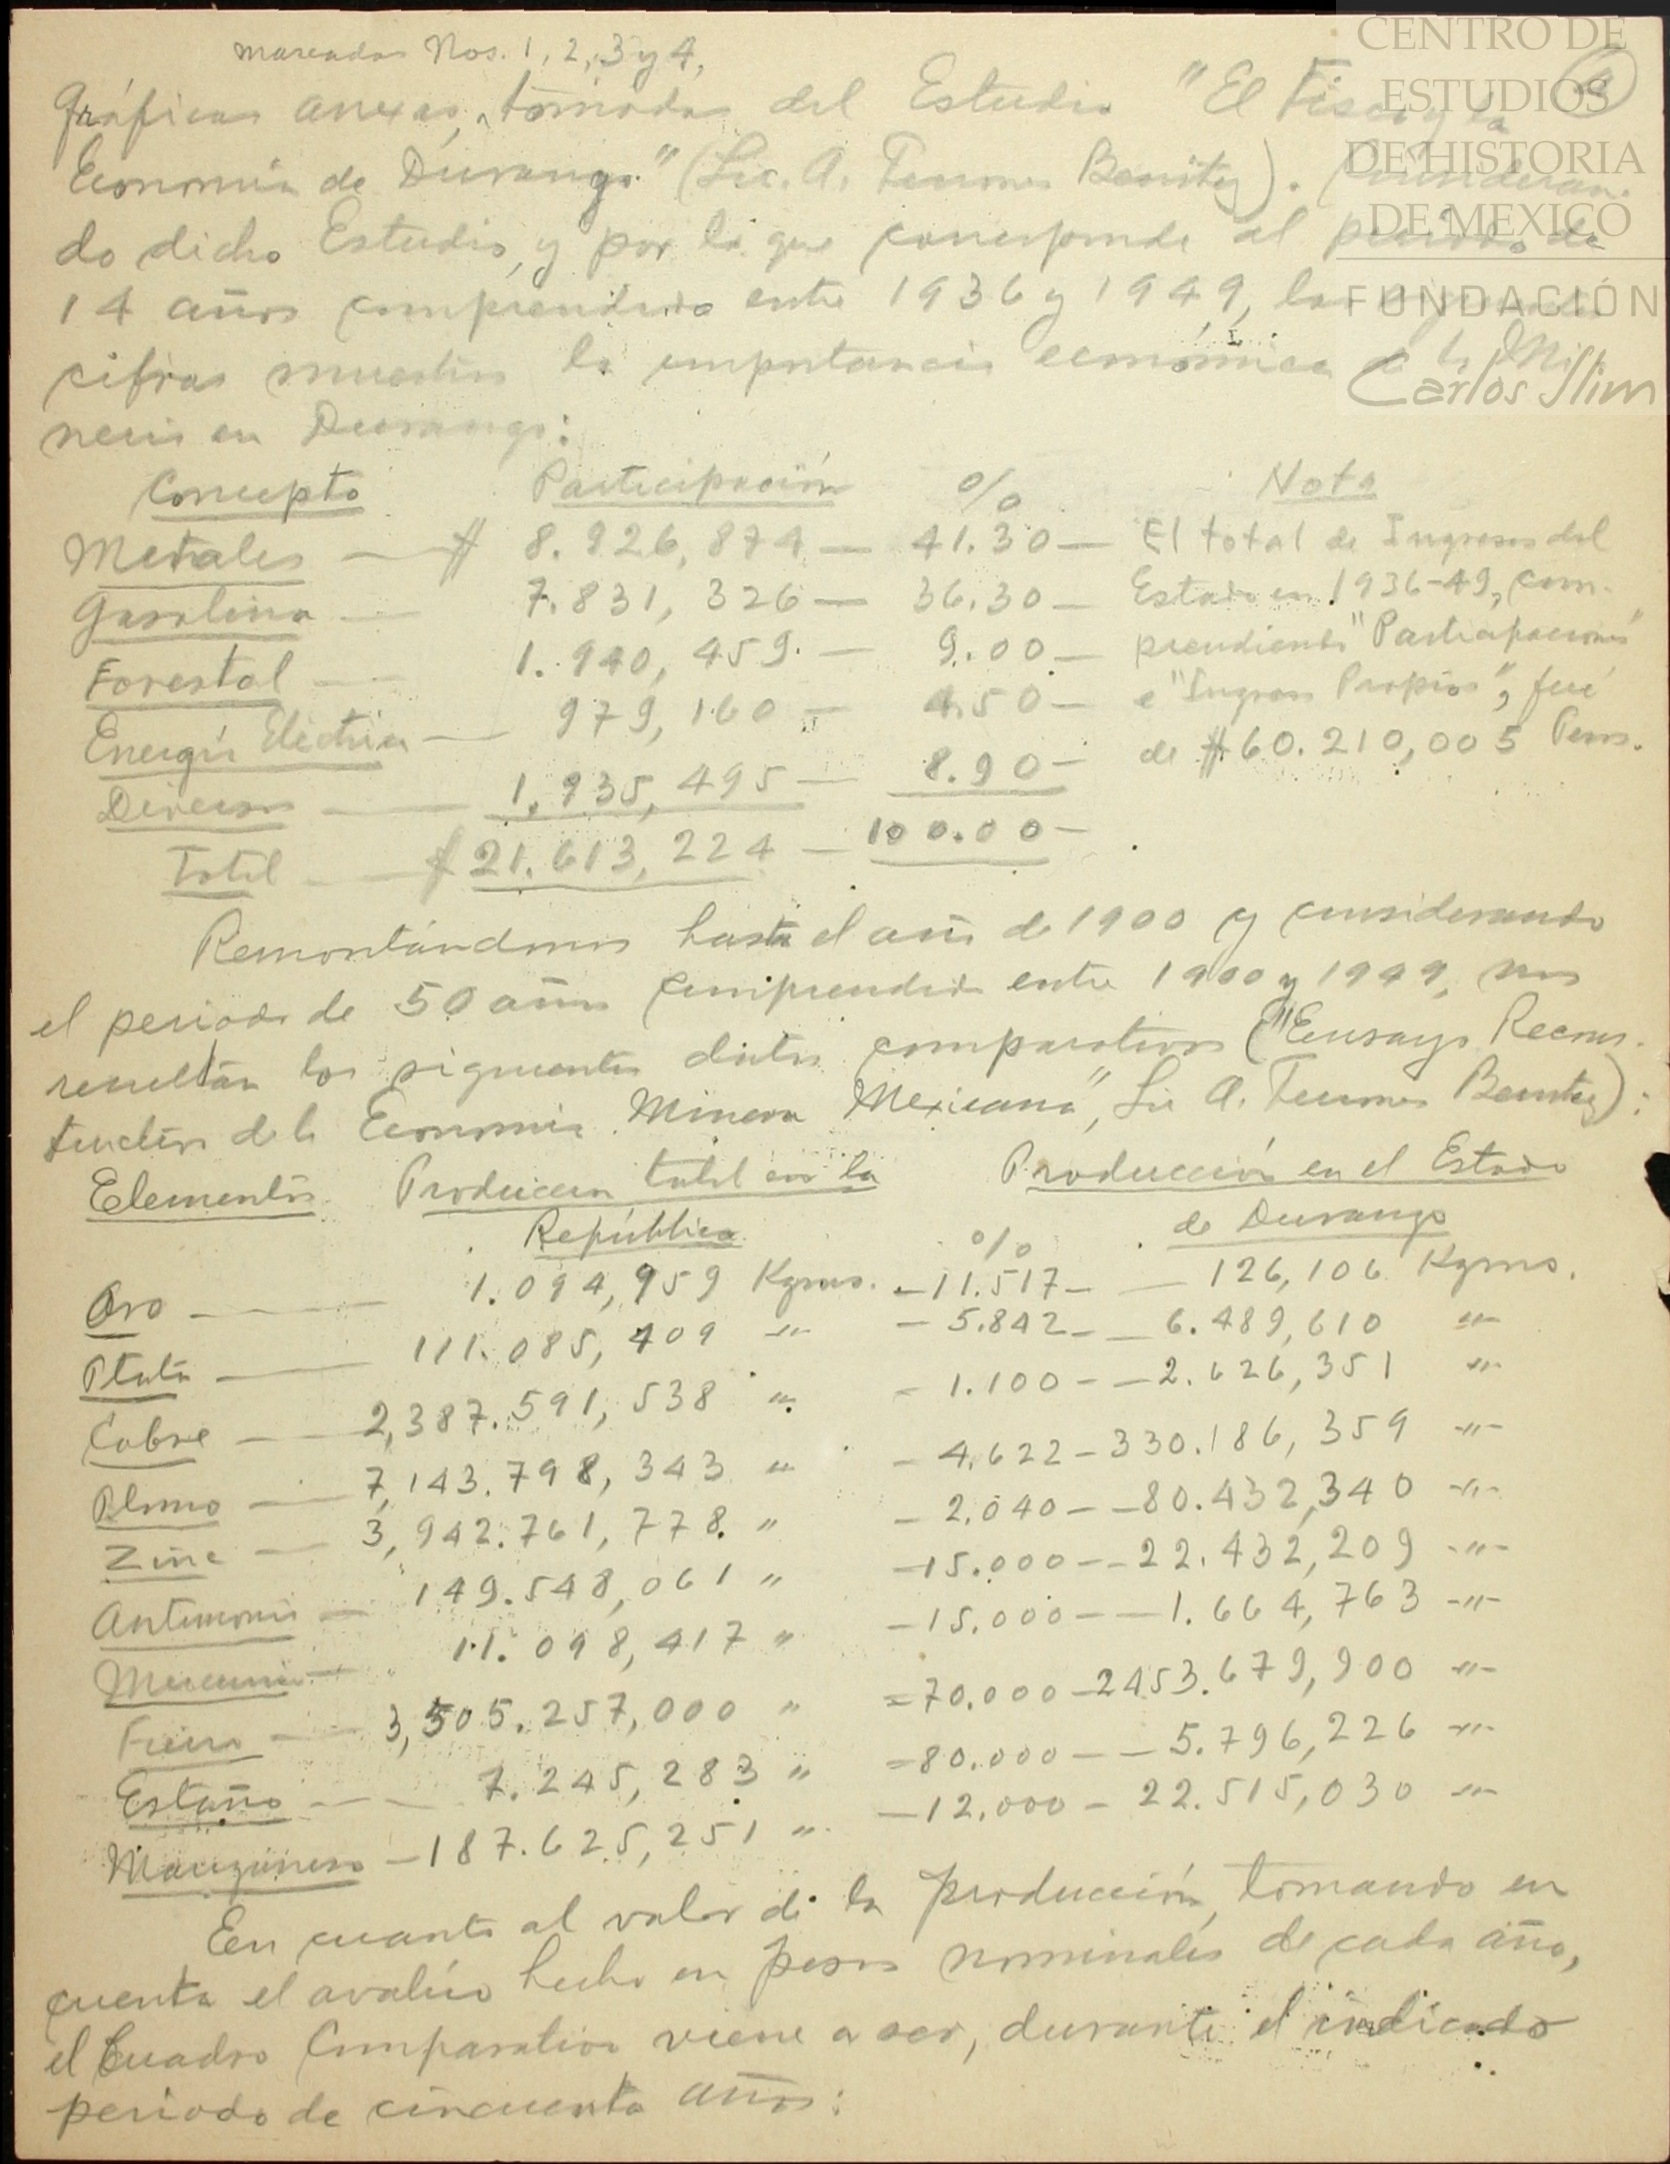 marcadas Nos. 1, 2, 3 y 4,
Gráficas anexas, tomadas del Estudio "El Fisco y la
Economía de Durango" (Lic. A. Terrones Benítez). Consideran-
do dicho Estudio, y por lo que corresponde al período de
14 años comprendido entre 1936 y 1949, las siguientes
cifras muestran la importancia económica de la Mi-
nería en Durango:
Concepto Participación % Nota
Metales — $ 8.926,874 — 41.30 — El total de Ingresos del
Gasolina — 7.831, 326 — 36.30 — Estado en 1936-49, com-
Forestal — 1.940, 459. — 9.00 — prendiendo "Participaciones"
Energía Eléctrica — 979, 160 — 4.50 — e "Ingresos Propios", fué
Diversos — 1.935, 495 — 8.90 — de $60.210,005 Pesos.
Total — $ 21.613, 224 — 100.00 —
Remontándonos hasta el año de 1900 y considerando
el período de 50 años comprendido entre 1900 y 1949, nos
resultan los siguientes datos comparativos ("Ensayo Recons-
trucción de la Economía Minera Mexicana", Lic A. Terrones Benítez):
Elementos Producción total en la Producción en el Estado
República % de Durango
Oro — 1.094,959 Kgms. — 11.517 — 126,106 Kgms.
Plata — 111.085, 409 " — 5.842 — 6.489,610 "
Cobre — 2,387.591, 538 " — 1.100 — 2.626,351 "
Plomo — 7,143.798, 343 " — 4.622 — 330.186, 359 "
Zinc — 3,942.761, 778. " — 2.040 — 80.432,340 "
Antimonio — 149.548,061 " — 15.000 — 22.432,209 "
Mercurio — 11.098,417 " — 15.000 — 1.664,763 "
Fierro — 3,505.257,000 " — 70.000 — 2453.679,900 "
Estaño — 7.245, 283 " — 80.000 — 5.796,226 "
Manganeso — 187.625,251 " — 12.000 — 22.515,030 "
En cuanto al valor de la producción, tomando en
cuenta el avalúo hecho en pesos nominales de cada año,
el Cuadro Comparativo viene a ser, durante el indicado
período de cincuenta años:
CENTRO DE
ESTUDIOS
DE HISTORIA
DE MEXICO
FUNDACIÓN
Carlos Slim